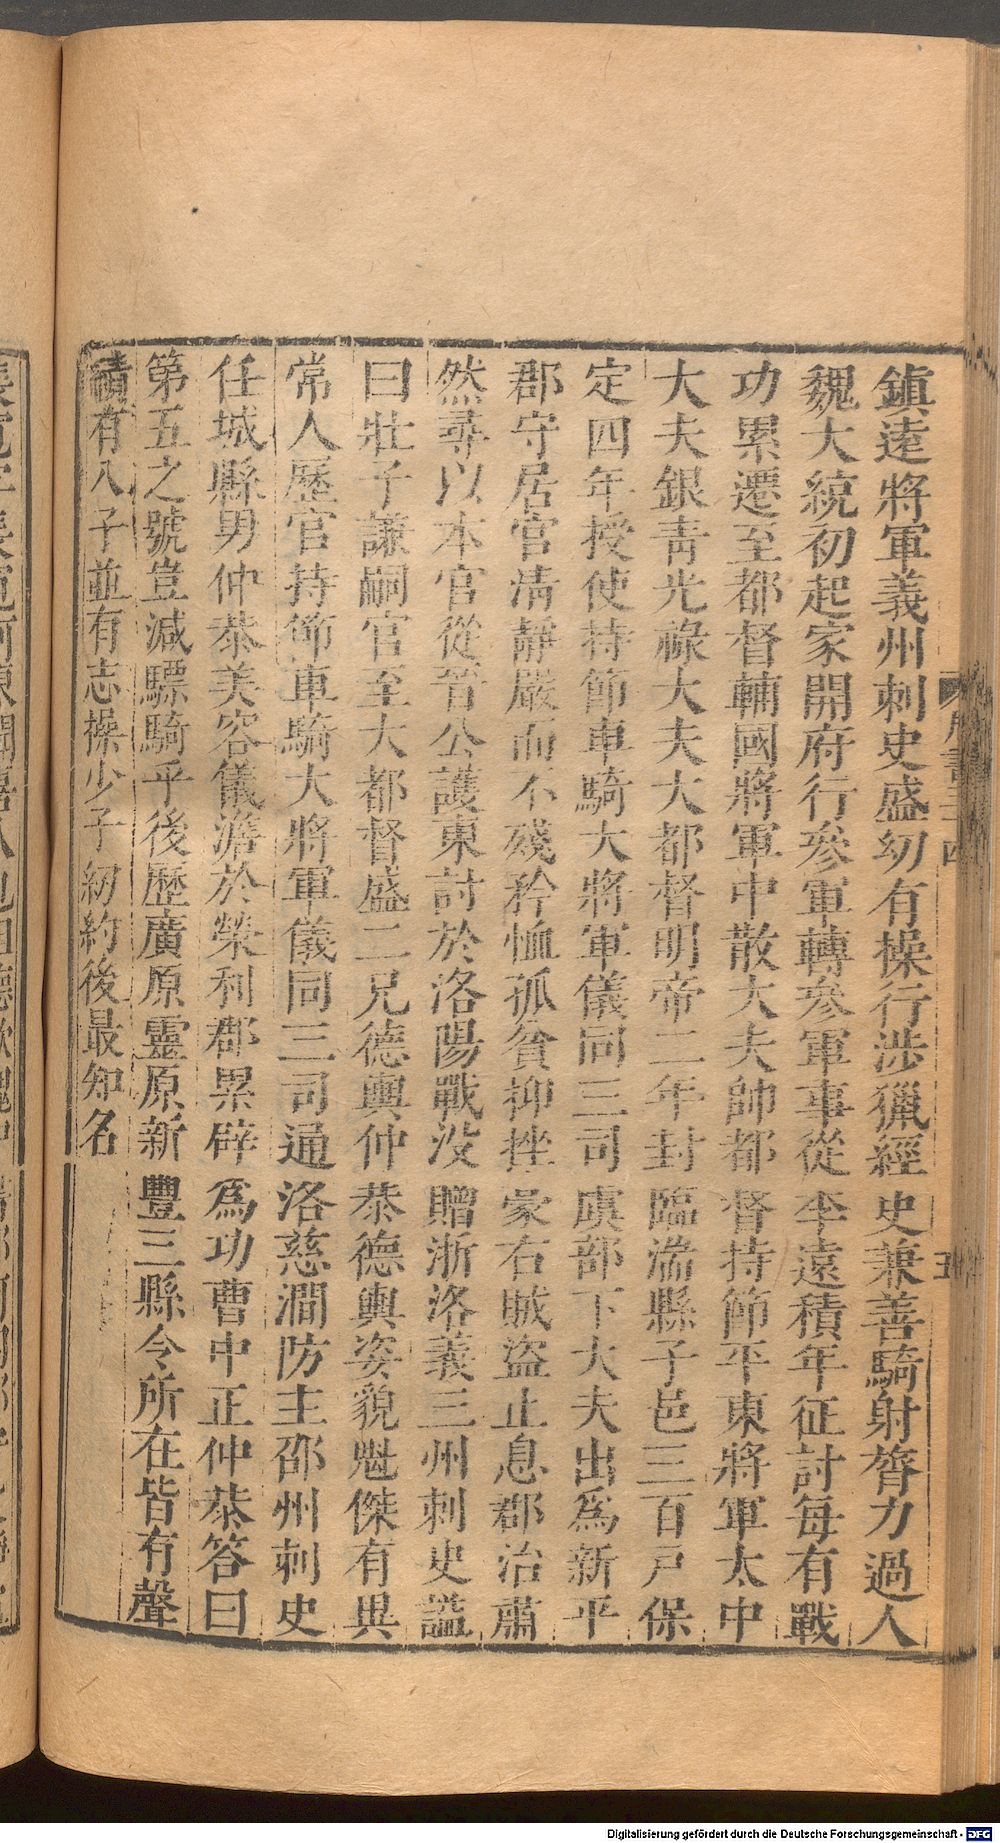 鎮遠將軍義州刺史盛幼有操行涉獵經史兼善騎射膂力過人
魏大統初起家開府行參軍轉參軍事從李遠積年征討每有戰
功累遷至都督輔國將軍中散大夫帥都督持節平東將軍太中
大夫銀青光祿大夫大都督明帝二年封臨湍縣子邑三百戶保
定四年授使持節車騎大將軍儀同三司虞部下大夫出為新平
郡守居官清靜嚴而不殘矜恤孤貧抑挫豪右賊盜止息郡治肅
然尋以本官從晉公護東討於洛陽戰沒贈浙洛義三州刺史謚
曰壯子謙嗣官至大都督盛二兄德輿仲恭德輿姿貌魁傑有異
常人歷官持節車騎大將軍儀同三司通洛慈澗防主邵州刺史
任城縣男仲恭美容儀澹於榮利郡累辟為功曹中正仲恭答曰
第五之號豈減驃騎乎後歷廣原靈原新豐三縣令所在皆有聲
績有八子並有志操少子紉約後最知名
五
Digitalisierung gefördert durch die Deutsche Forschungsgemeinschaft - DFG